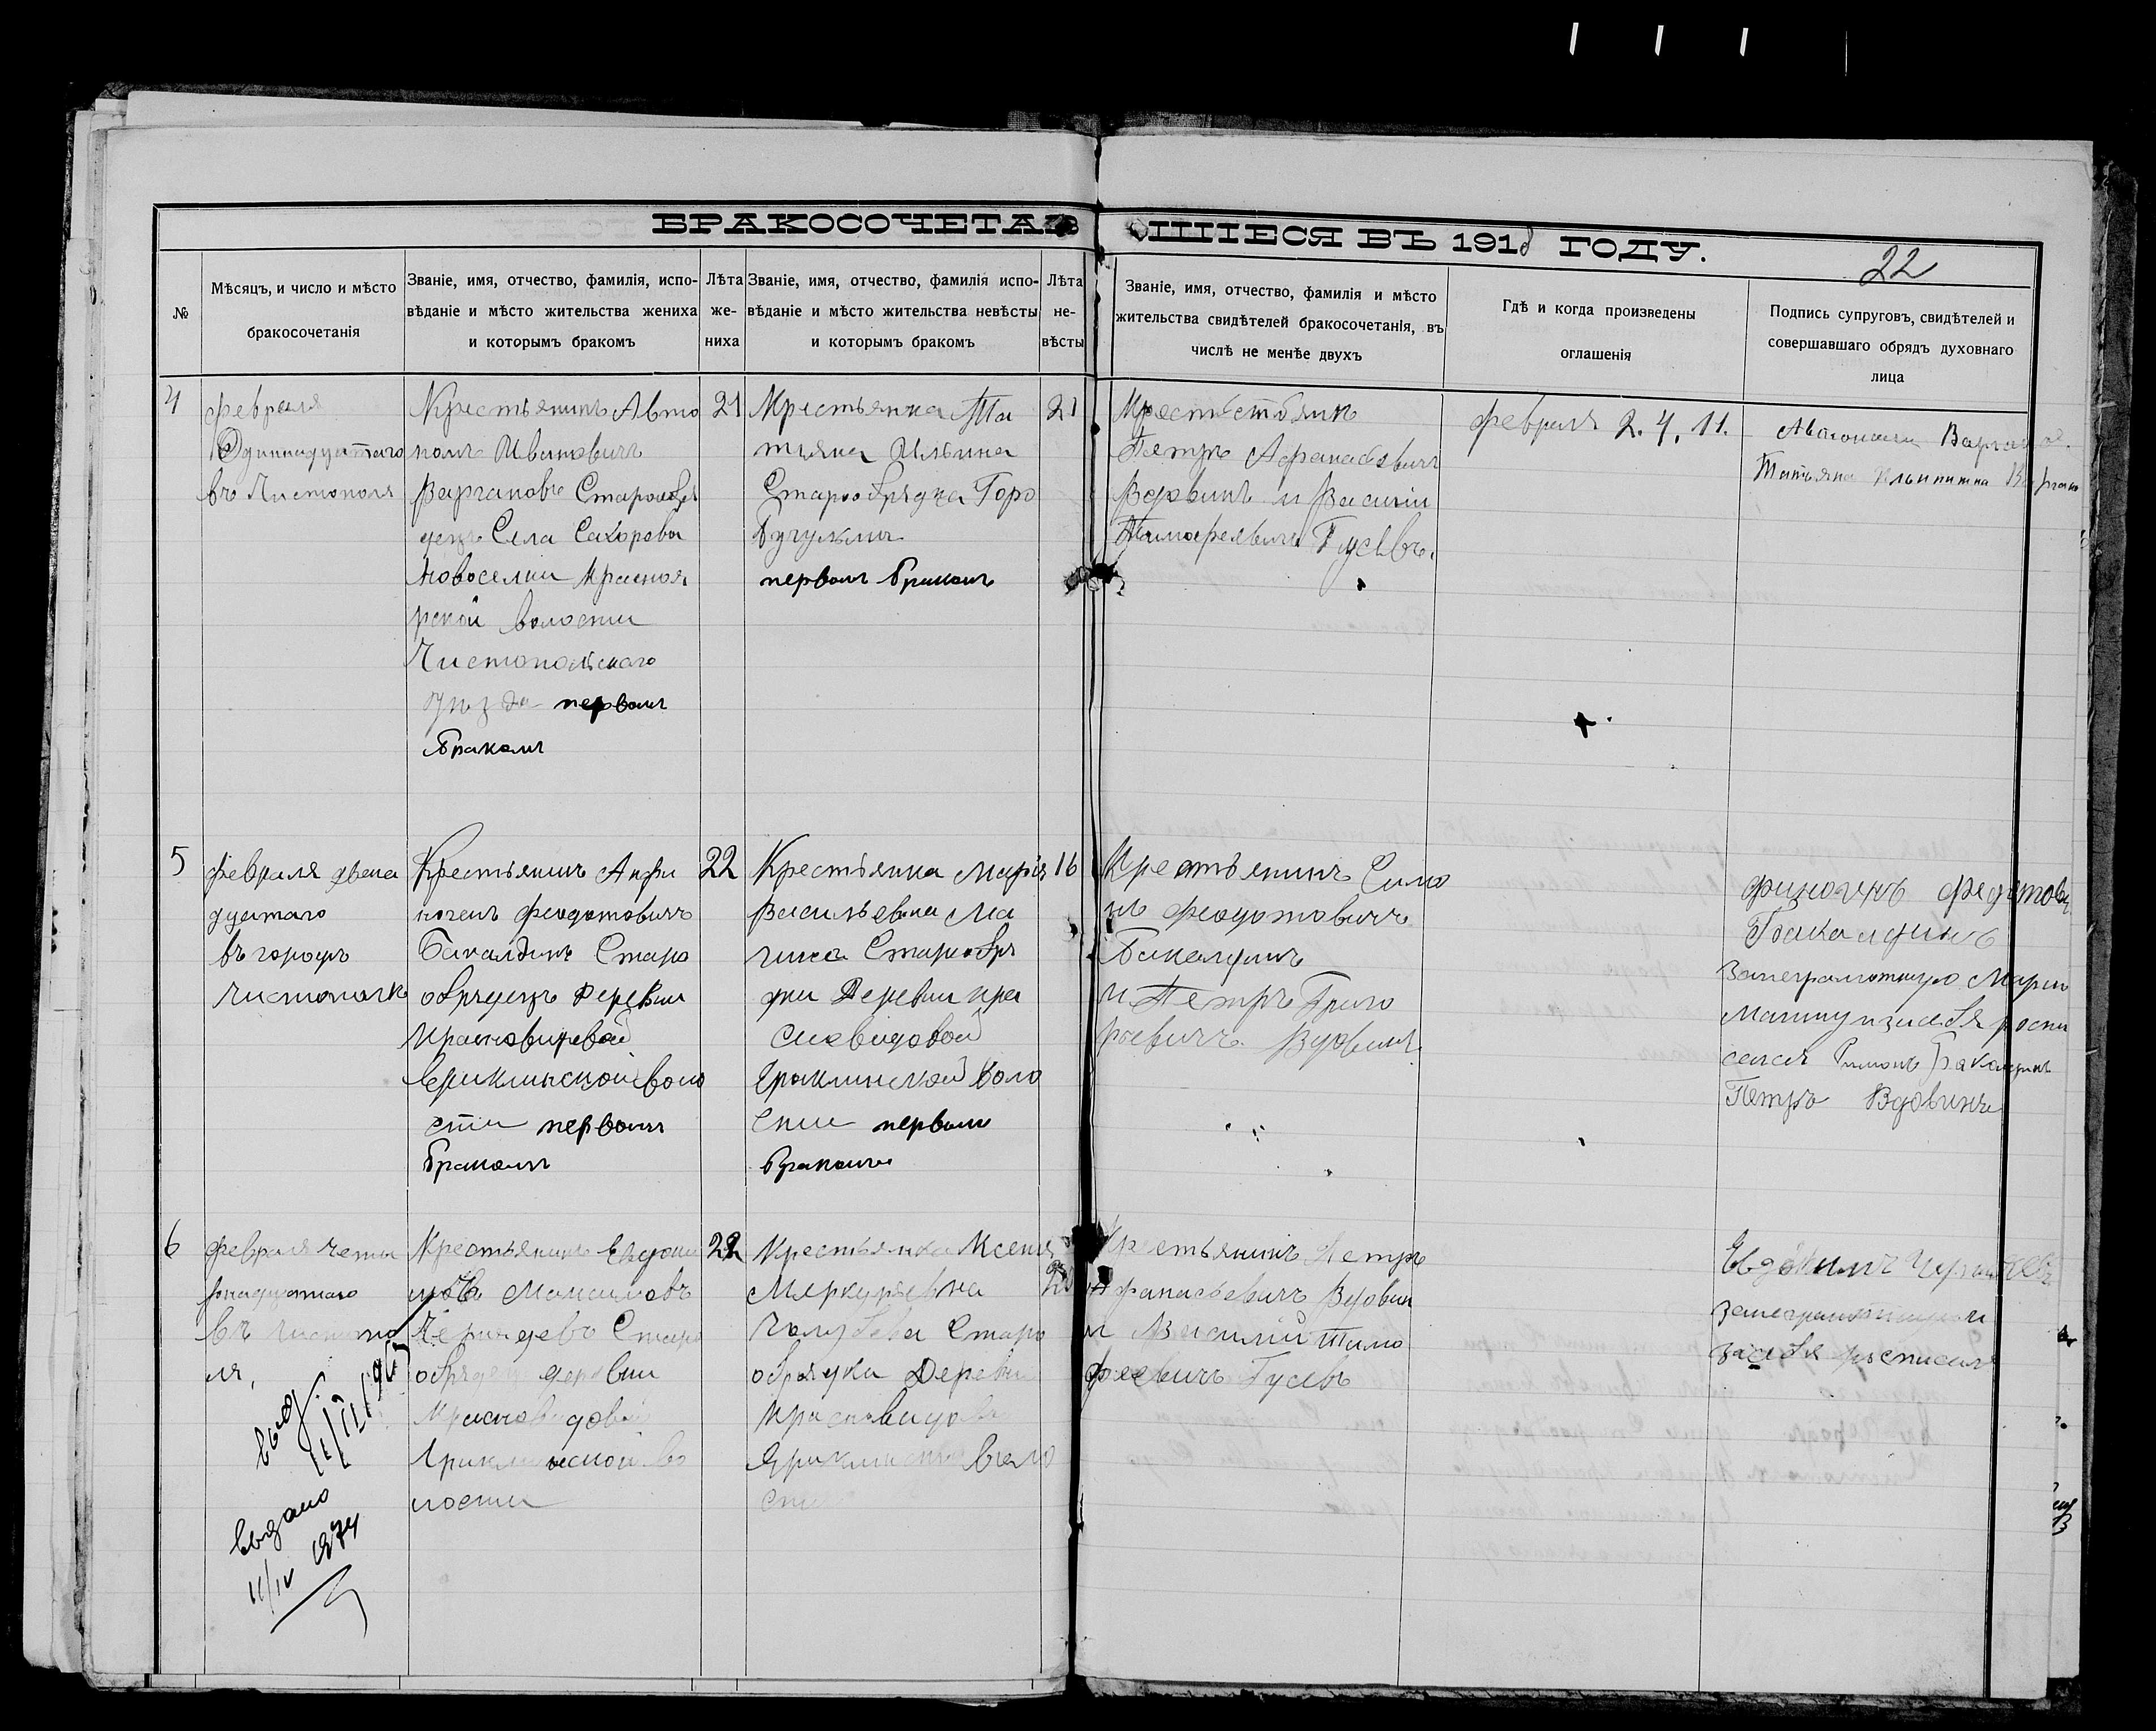 БРАКОСОЧЕТАВ
ШIЕСЯ ВЪ 191 ГОДУ.
22
№
Мѣсяцъ, и число и мѣсто
бракосочетанія
Званіе, имя, отчество, фамилія, испо-
вѣданіе и мѣсто жительства жениха
и которымъ бракомъ
Лѣта
же-
ниха
Званіе, имя, отчество, фамилія испо-
вѣданіе и мѣсто жительства невѣсты
и которымъ бракомъ
Лѣта
не-
вѣсты
Званіе, имя, отчество, фамилія и мѣсто
жительства свидѣтелей бракосочетанія, въ
числѣ не менѣе двухъ
Гдѣ и когда произведены
оглашенія
Подпись супруговъ, свидѣтелей и
совершавшаго обрядъ духовнаго
лица
4
февраля
Одинадцатаго
въ Чистополя
Крестьянинъ Авто
номъ Ивановичъ
Варгановъ Старообря
децъ Села Сахарова
Новоселки Краснояр
рской волости
Чистопольскаго
уѣзда первымъ
бракомъ
21
Крестьянка Та
тьяна Ильина
Старообрядка Горо
первымъ бракомъ
21
Петръ Афанасьевич
Вдовинъ и Василіи
Тимофеевичъ Гусевъ.
февраля 2. 4. 11.
Татьяна
5
февраля двена
дцатаго
въ городѣ
Чистополѣ
Крестьянинъ Анфи
ногенъ Феодотовичъ
Бакалдинъ Старо
обрядецъ деревни
Красновидовой
Ериклинской воло
сти первымъ
бракомъ
22
Крестьянка Марія
Васильевна Ма
Старообря
дка Деревни Кра
сновидовой
Ериклинской Воло
сти первымъ
бракомъ
16
Крестьянинъ Симо
нъ Феодотовичъ
Бакалдинъ
и Петръ Григо
рьевичъ Вдовинъ
Финогенъ Федотовъ
Бакалдинъ
занеграмотную Марию
росписался Симонъ Бакалдинъ
Петръ Вдовинъ
6
февраля четы
рнадцатаго
въ Чистопо
ля,
Крестьянинъ Евдоки
мъ Максимовъ
Старо
обрядецъ деревни
Красновидовой
Ериклинской во
лости
22
Крестьянка Ксенія
Меркурьевна
Голубева Старо
обрядка Деревни
Красновидова
Ериклинской воло
сти
Крестьянинъ Петръ
Афанасьевичъ Вдовин
и Василій Тимо
феевичъ Гусевъ
Евдокимъ
за себя росписалъ
выд.
выдано
11/IV 1974